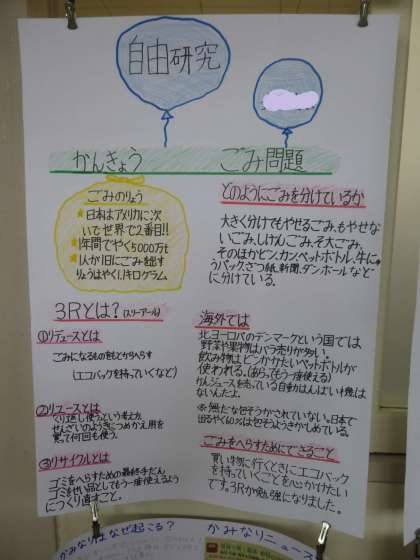 自由研究
かんきょう
ごみのりょう
日本はアメリカに次
いで世界で2番目!!
1年間でやく5000万t
1人が1日にごみを出す
りょうはやく1.1キログラム
3Rとは?(スリーアール)
①リデュースとは
ごみになるものをもとからへらす
(エコバックを持っていくなど)
②リユースとは
くり返し使うという考え方。
せんざいのようきにつめかえ用を
買って何回も使う。
③リサイクルとは
ゴミをへらすための最終手だん。
ゴミをせい品としてもう一度使えるよう
につくり直すこと。
ごみ問題
どのようにごみを分けているか
大きく分けてもやせるごみ、もやせな
いごみ、しげんごみ、そ大ごみ。
そのほかビン、カン、ペットボトル、牛にゅ
うパックざつ紙、新聞、ダンボールなど
に分けている。
海外では
北ヨーロパのデンマークという国では
野菜や果物はバラ売りが多い。
飲み物はビンかかたいペットボトルが
使われる。(あらってもう一度使える)
かんジュースを売っている自動はんばい機は
ないんだよ。
出るやく60%は包そうがしめている。
ごみをへらすためにできること
買い物に行くときにエコバック
を持っていくことを心がけたい
です。3Rが勉強になりました。
かみなりはなぜ起こる?
かみなりニュース